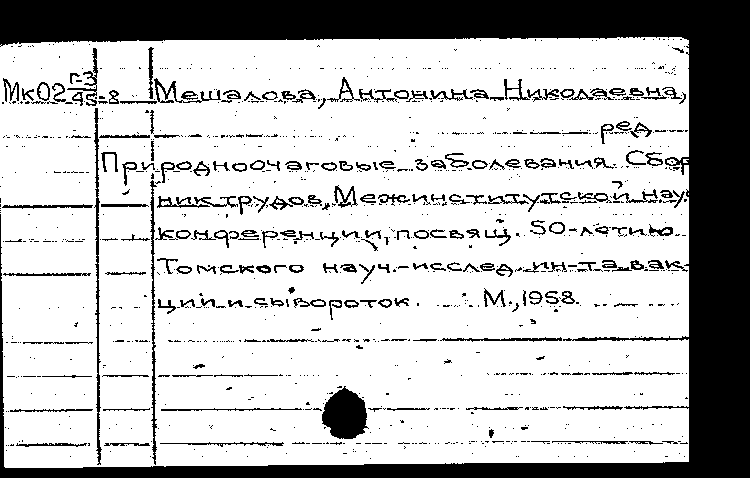 Мк02 Г-3/45-8 Мешалова, Антонина Николаевна,
ред
Природноочаговые заболевания. Сбор
ник трудов, Межинститутской нау
конференции, посвящ. 50-летию
Томского науч.-исслед. ин-та вак-
цин и сывороток. М., 1958